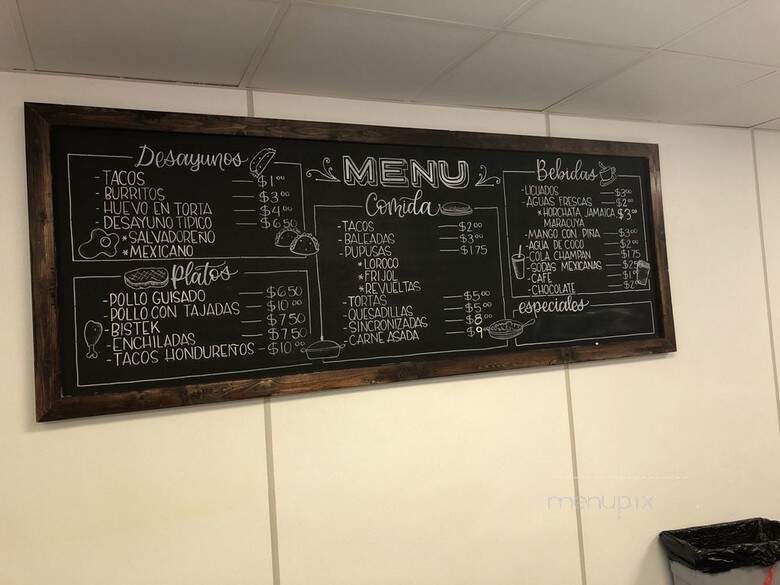 MENU
Desayunos
- TACOS — $1⁰⁰
- BURRITOS — $3⁰⁰
- HUEVO EN TORTA — $4⁰⁰
- DESAYUNO TIPICO — $6.50
*SALVADOREÑO
*MEXICANO
Platos
- POLLO GUISADO — $6.50
- POLLO CON TAJADAS — $10.00
- BISTEK — $7.50
- ENCHILADAS — $7.50
- TACOS HONDUREÑOS - $10.00
Comida
- TACOS — $2⁰⁰
- BALEADAS — $3⁰⁰
- PUPUSAS — $1.75
*LOROCO
*FRIJOL
*REVUELTAS
- TORTAS — $5⁰⁰
- QUESADILLAS — $5⁰⁰
- SINCRONIZADAS — $8
- CARNE ASADA — $9
Bebidas
- LICUADOS — $3⁰⁰
- AGUAS FRESCAS — $2⁰⁰
*HORCHATA JAMAICA $3⁰⁰
MARACUYA
- MANGO CON PIÑA — $3⁰⁰
- AGUA DE COCO — $2⁰⁰
- COLA CHAMPAN — $1.75
- SODAS MEXICANAS — $2
- CAFE — $1
- CHOCOLATE — $2
especiales
menupix